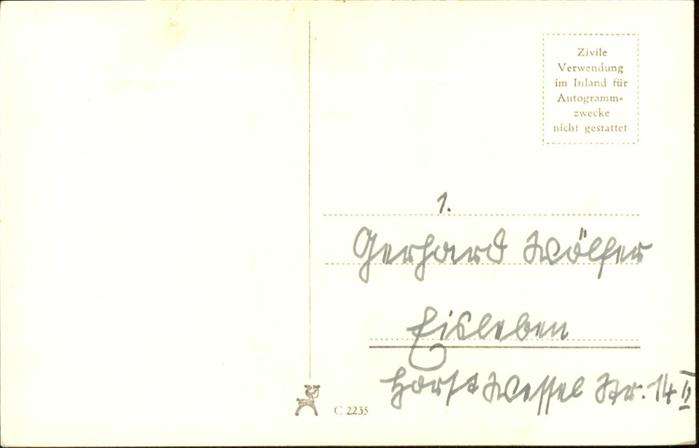 Zivile
Verwendung
im Inland für
Autogramm-
zwecke
nicht gestattet
1.
Gerhard Wölfer
Eisleben
Horst Wessel Str. 14 II
C 2235